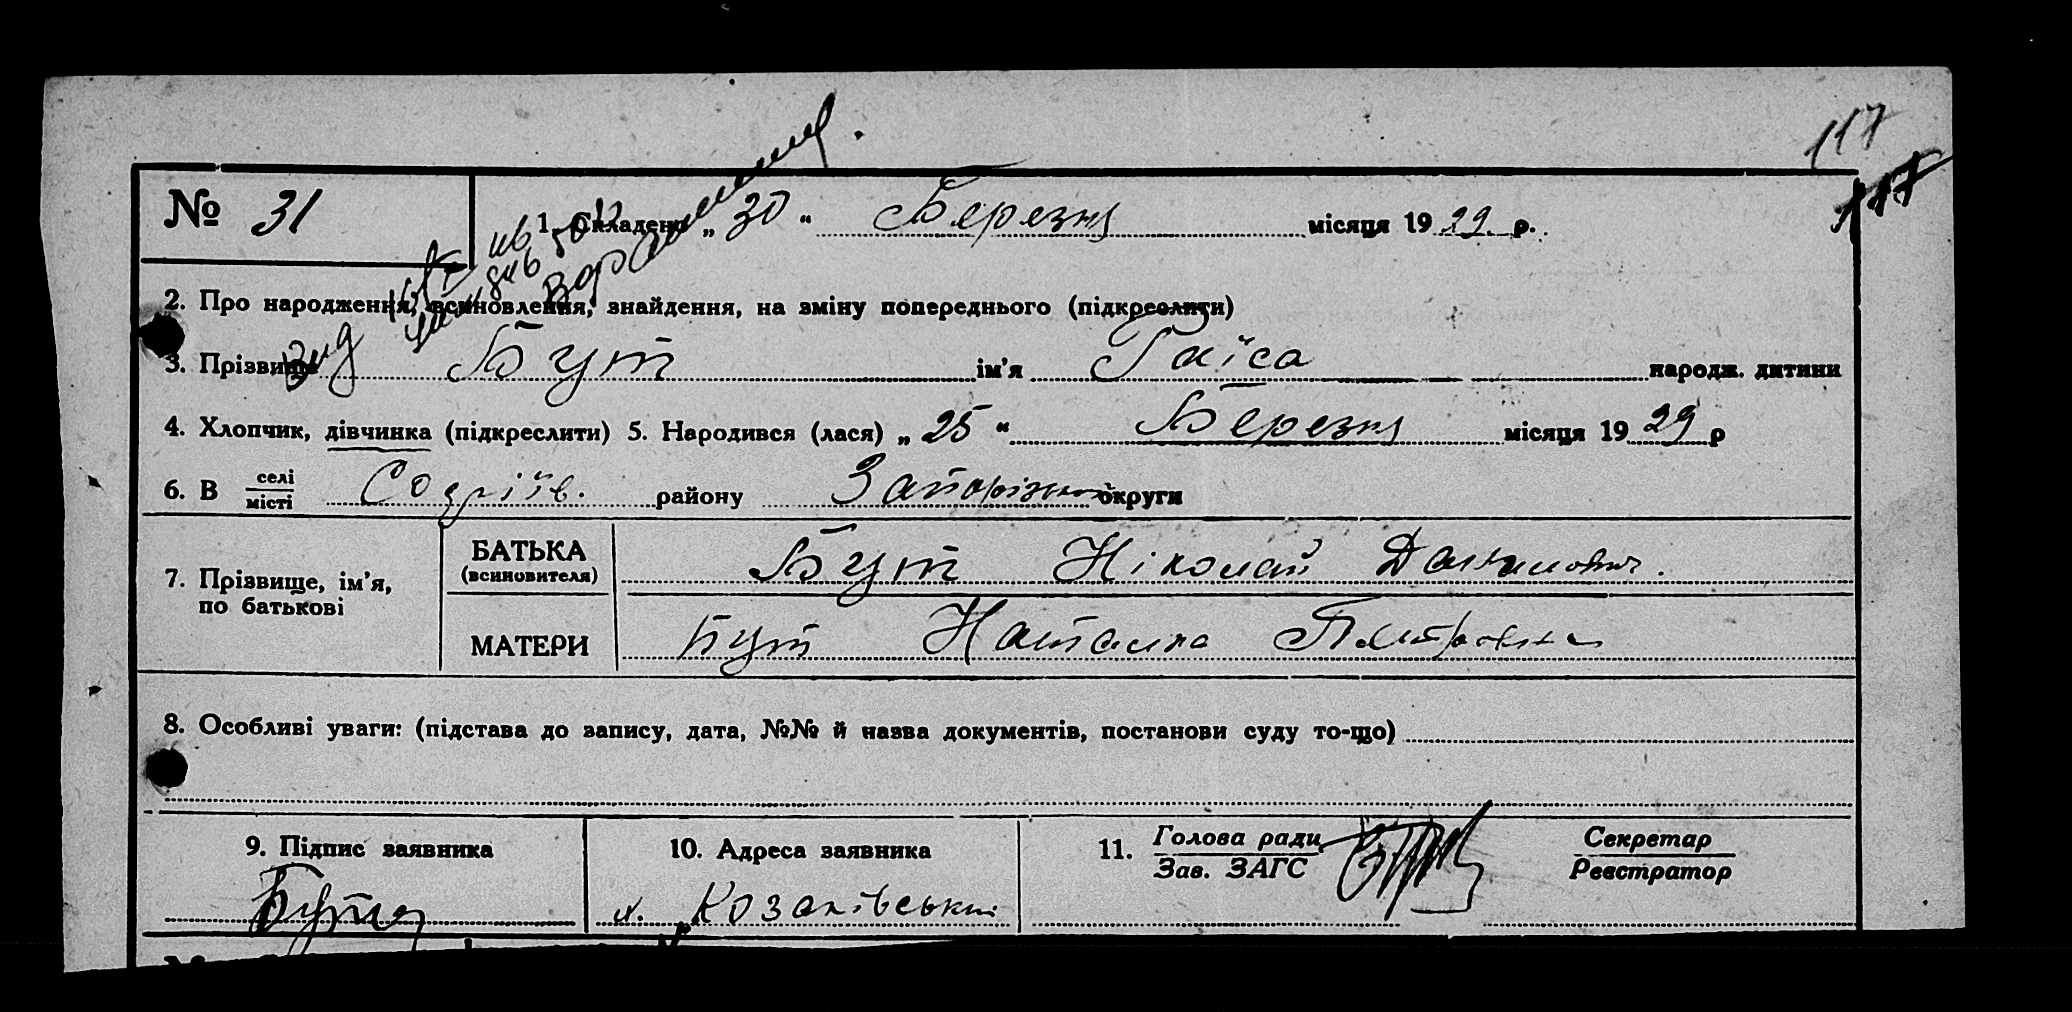 117
117
№ 31
1. Складено „30“ Березня місяця 1929 р.
2. Про народження, всиновлення, знайдення, на зміну попереднього (підкреслити)
3. Прізвище Бут ім'я Раїса народж. дитини
4. Хлопчик, дівчинка (підкреслити) 5. Народився (лася) „25“ Березня місяця 1929 р
6. В селі/місті району Запорізької округи
7. Прізвище, ім'я, по батькові
БАТЬКА (всиновителя) Бут Ніколай
МАТЕРИ Бут Наталка Пметровна
8. Особливі уваги: (підстава до запису, дата, №№ й назва документів, постанови суду то-що)
9. Підпис заявника 10. Адреса заявника 11. Голова ради/Зав. ЗАГС Секретар/Реєстратор
х. Козаківський